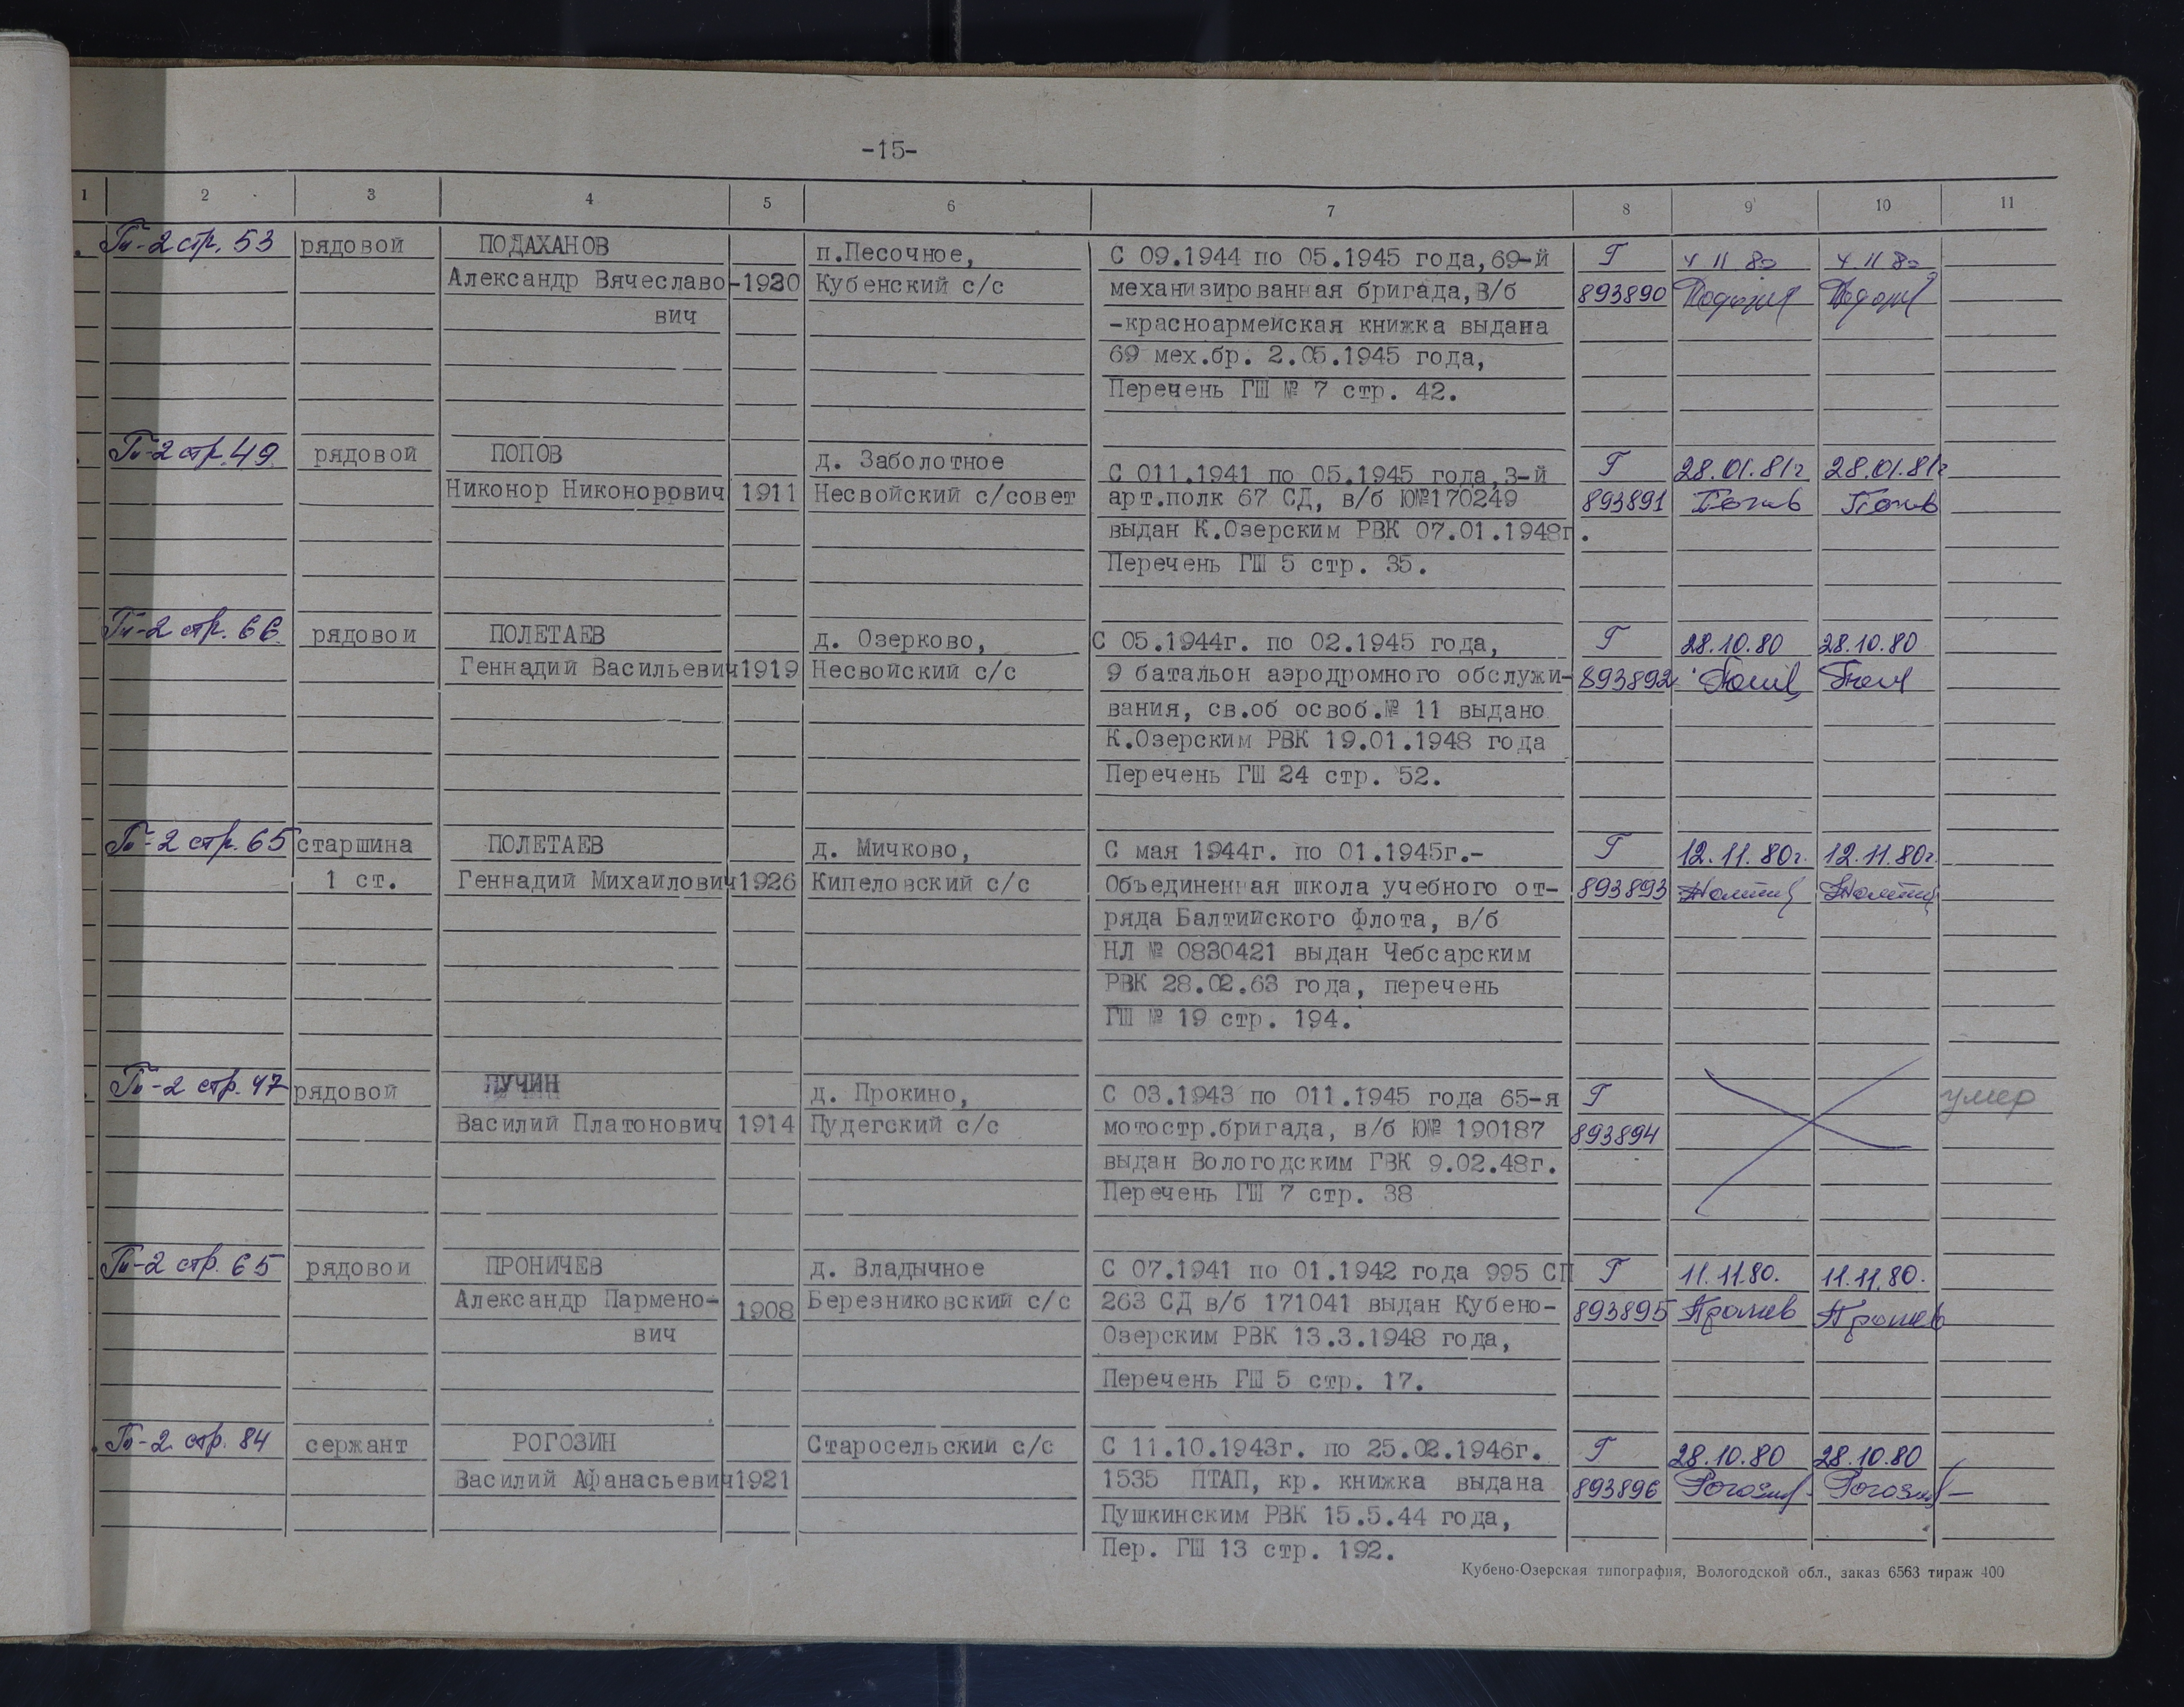 -15-
1 2 3 4 5 6 7 8 9 10 11
Гв-2 стр. 53 рядовой ПОДАХАНОВ п.Песочное, С 09.1944 по 05.1945 года,69-й Г 4 11 80 4 11 80
Александр Вячеславо-1920 Кубенский с/с механизированная бригада,В/б 893890
вич -красноармейская книжка выдана
69 мех.бр. 2.05.1945 года,
Перечень ГШ № 7 стр. 42.
Гв-2 стр. 49 рядовой ПОПОВ д. Заболотное С 011.1941 по 05.1945 года,3-й Г 28.01.81г 28.01.81г
Никонор Никонорович 1911 Несвойский с/совет арт.полк 67 СД, в/б Ю№170249 893891 Попов Попов
выдан К.Озерским РВК 07.01.1948г.
Перечень ГШ 5 стр. 35.
Гв-2 стр. 66 рядовой ПОЛЕТАЕВ д. Озерково, С 05.1944г. по 02.1945 года, Г 28.10.80 28.10.80
Геннадий Васильевич 1919 Несвойский с/с 9 батальон аэродромного обслужи- 893892
вания, св.об освоб.№ 11 выдано
К.Озерским РВК 19.01.1948 года
Перечень ГШ 24 стр. 52.
Гв-2 стр. 65 старшина ПОЛЕТАЕВ д. Мичково, С мая 1944г. по 01.1945г.- Г 12.11.80г. 12.11.80г.
1 ст. Геннадий Михайлович 1926 Кипеловский с/с Объединенная школа учебного от- 893893
ряда Балтийского Флота, в/б
НЛ № 0830421 выдан Чебсарским
РВК 28.02.63 года, перечень
ГШ № 19 стр. 194.
Гв-2 стр. 47 рядовой ПУЧИН д. Прокино, С 03.1943 по 011.1945 года 65-я Г умер
Василий Платонович 1914 Пудегский с/с мотостр.бригада, в/б Ю№ 190187 893894
выдан Вологодским ГВК 9.02.48г.
Перечень ГШ 7 стр. 38
Гв-2 стр. 65 рядовой ПРОНИЧЕВ д. Владычное С 07.1941 по 01.1942 года 995 СП Г 11.11.80. 11.11.80.
Александр Пармено- 1908 Березниковский с/с 263 СД в/б 171041 выдан Кубено- 893895
вич Озерским РВК 13.3.1948 года,
Перечень ГШ 5 стр. 17.
Гв-2 стр. 84 сержант РОГОЗИН Старосельский с/с С 11.10.1943г. по 25.02.1946г. Г 28.10.80 28.10.80
Василий Афанасьевич 1921 1535 ПТАП, кр. книжка выдана 893896 Рогозин Рогозин
Пушкинским РВК 15.5.44 года,
Пер. ГШ 13 стр. 192.
Кубено-Озерская типография, Вологодской обл., заказ 6563 тираж 400